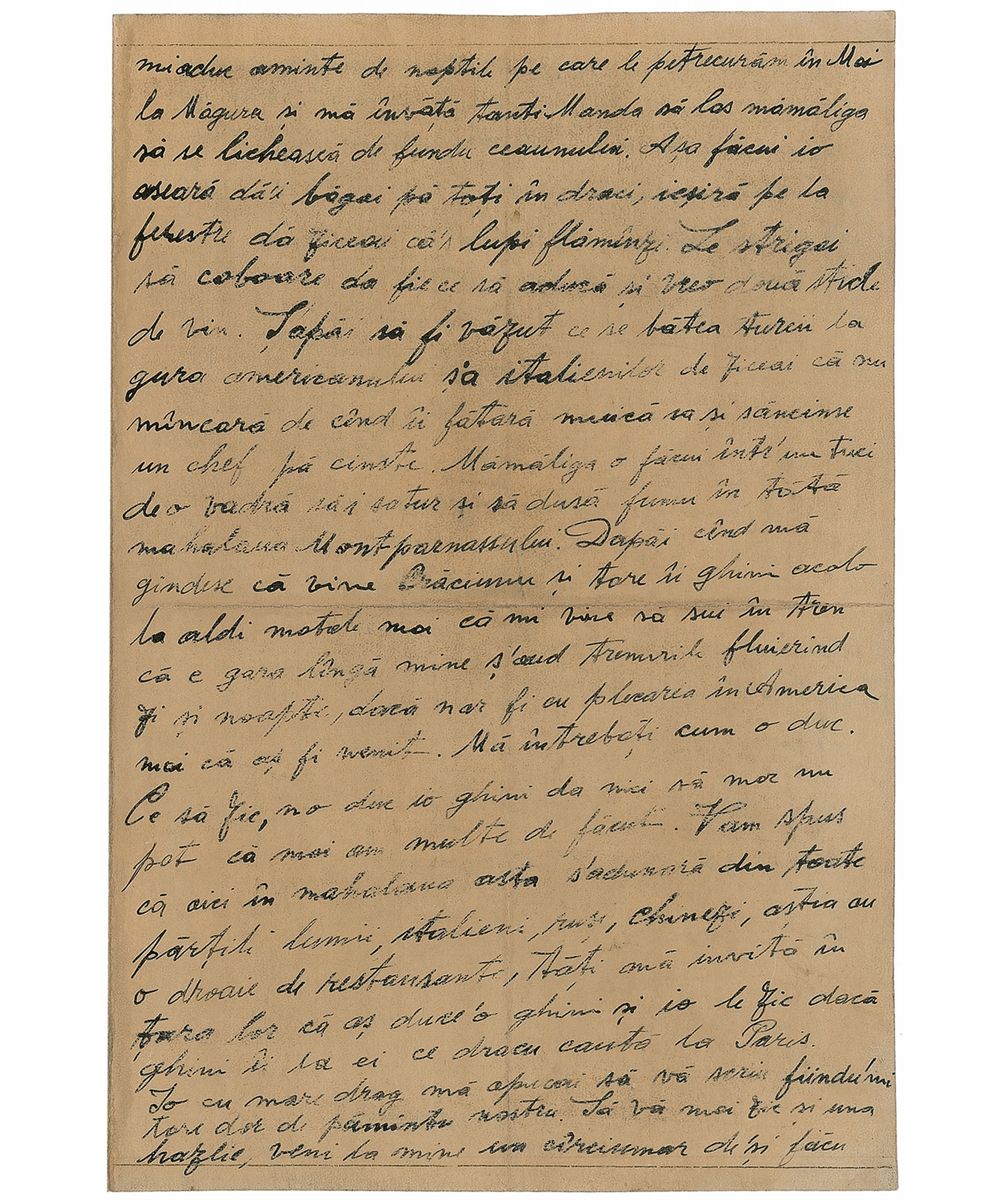 miaduc aminte de nopțile pe care le petrecurăm în Mai
la Măgura și mă învăță tanti Manda să las mămăliga
să se lichească de fundu ceaunului. Așa făcui io
aseară dă'i băgai pă toți în draci, ieșiră pe la
ferestre dă ziceai că's lupi flămînzi. Le strigai
să coboare da fiece să aducă și vreo două sticle
de vin. Ș'apăi să fi văzut ce se bătea turcu la
gura americanului ș'a italienilor de ziceai că nu
mîncară de cînd îi fătară muică sa și săncinse
un chef pă cinste. Mămăliga o făcui într'un tuci
de o vadră să i satur și să dusă fumu în tătă
mahalaua Montparnassului. Dapăi cînd mă
gîndesc că vine Crăciunu și tare îi ghini acolo
la aldi matale mai că mi vine să sui în tren
că e gara lîngă mine ș'aud trenurile fluierînd
zi și noapte, dacă nar fi cu plecarea în America
mai că aș fi venit. Mă întrebați cum o duc.
Ce să zic, no duc io ghini da nici să mor nu
pot că mai am multe de făcut. Vam spus
că aici în mahalaua asta s'adunară din toate
părțili lumii, italieni, ruși, chinezi, aștia au
o droaie de restausante, tăți mă invită în
țara lor că aș duce'o ghini și io le zic dacă
ghini îi la ei ce dracu caută la Paris.
Io cu mare drag mă apucai să vă scriu fiindu'mi
tare dor de pămîntu nostru Să vă mai zic și una
hazlie, veni la mine un cîrciumar de'și făcu